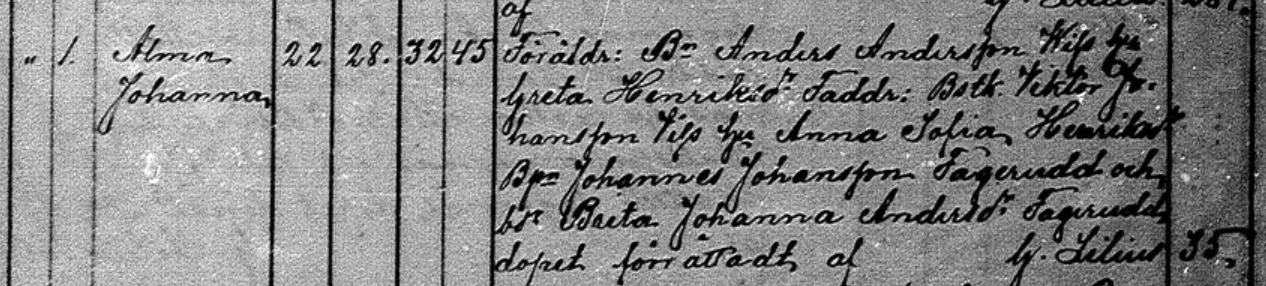 af G. Lilius
" 1. Alma 22 28. 32 45 Föräldr: Bn Anders Andersson Wiss hu
Johanna, Greta Henriksdr Faddr: Bstk Viktor Jo-
hansson Viss hu Anna Sofia Henriksdr
Bpn Johannes Johansson Fagerudd och
bdr Greta Johanna Andersdr Fagerudd,
dopet förrättadt af G. Lilius 35.